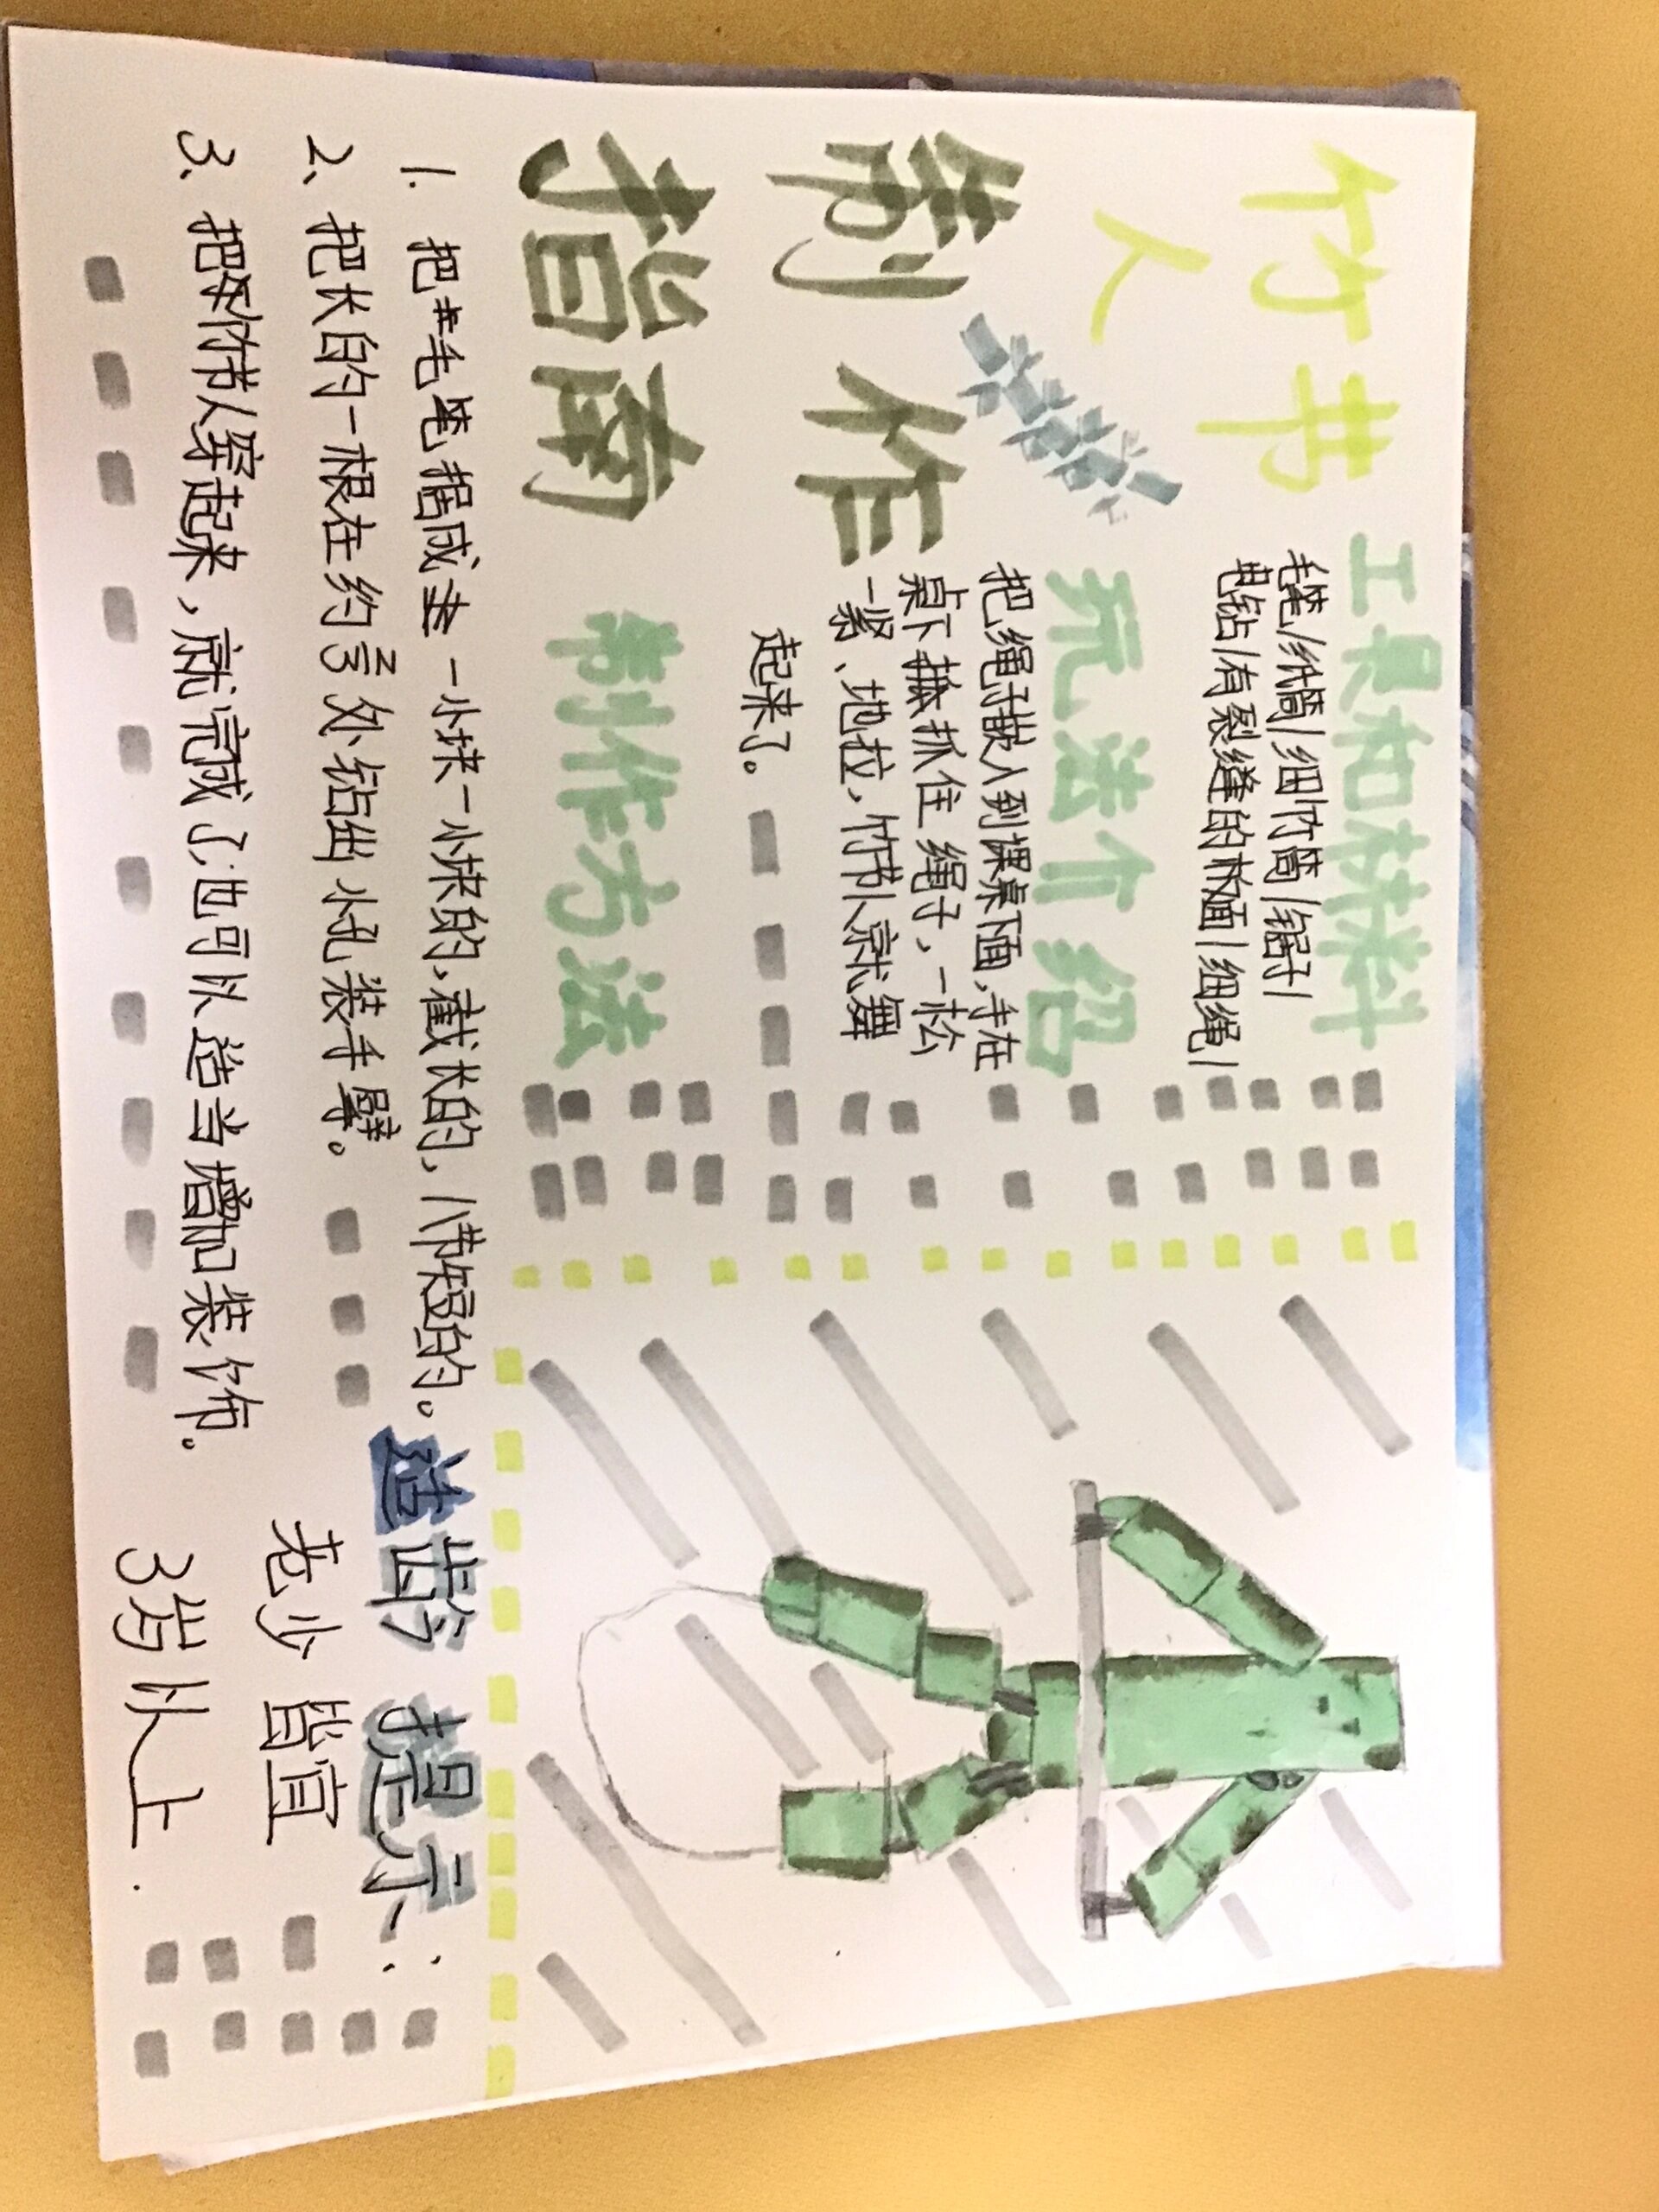 竹节
人
制作
指南
工具和材料
毛笔/纸筒/细竹筒/锯子/
电钻/有裂缝的桌面/细绳/
玩法介绍
把绳子嵌入到课桌下面,手在
桌下抓住绳子,一松
一紧、地拉,竹节人就舞
起来了。
制作方法
1. 把毛笔据成一小块一小块的,截长的,八节短的。
2、把长的一根在约处钻出小孔装手臂。
3、把竹节人穿起来,就完成了;也可以适当增加装饰。
适龄提示:
老少皆宜
3岁以上.